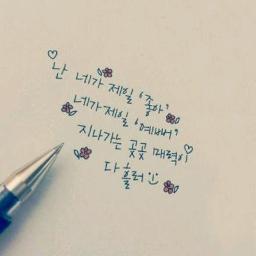 난 네가 제일 '좋아'
네가 제일 '예뻐'
지나가는 곳곳 매력이
다 흘러